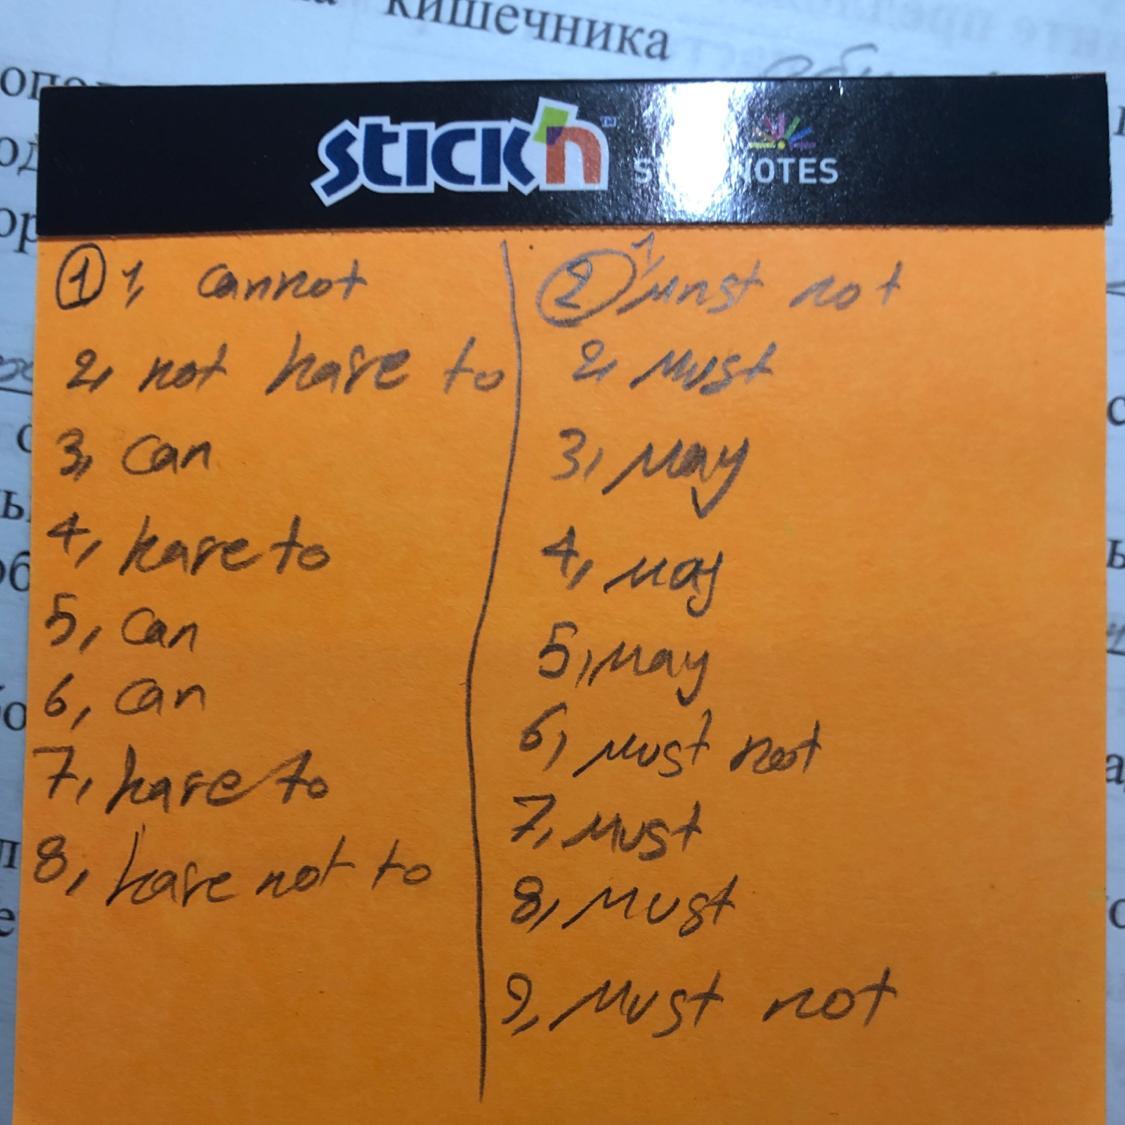 кишечника
STICK'N™
NOTES
① 1, cannot
2, not have to
3, can
4, have to
5, can
6, can
7, have to
8, have not to
② 1, must not
2, must
3, may
4, may
5, may
6, must not
7, must
8, must
9, must not